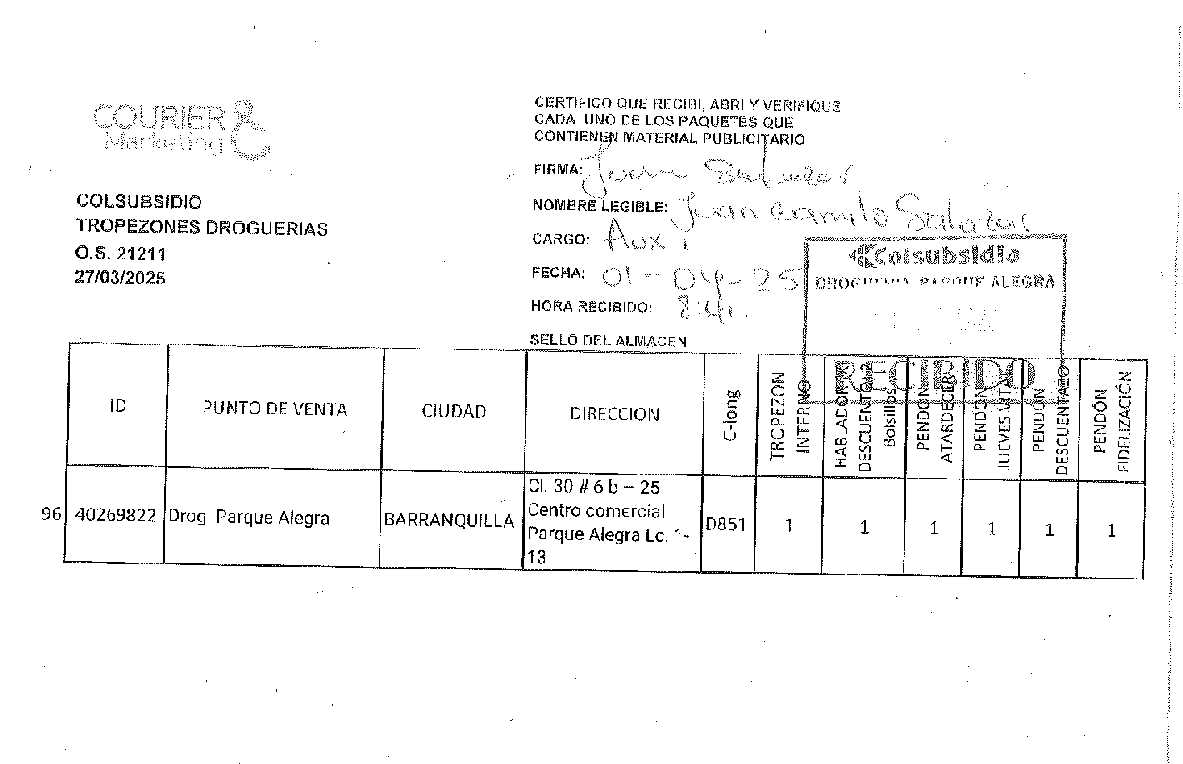 COURIER
Marketing
COLSUBSIDIO
TROPEZONES DROGUERIAS
O.S. 21211
27/03/2025
CERTIFICO QUE RECIBI, ABRI Y VERIFIQUE
CADA UNO DE LOS PAQUETES QUE
CONTIENEN MATERIAL PUBLICITARIO
FIRMA: Juan Salazar
NOMBRE LEGIBLE: Juan camilo Salazar
CARGO: Aux 1
FECHA: 01-04-25
HORA RECIBIDO: 8:41
SELLO DEL ALMACEN
Colsubsidio
DROGUERIA PARQUE ALEGRA
RECIBIDO
ID PUNTO DE VENTA CIUDAD DIRECCION C-long TROPEZON INTERNO HABLADOR DESCUENTON Bolsillos PENDON ATARDECER PENDON JUEVES VITAL PENDON DESCUENTAZO PENDÓN FIDELIZACIÓN
96 40269822 Drog Parque Alegra BARRANQUILLA Cl. 30 # 6 b – 25 Centro comercial Parque Alegra Lc. 1-13 D851 1 1 1 1 1 1